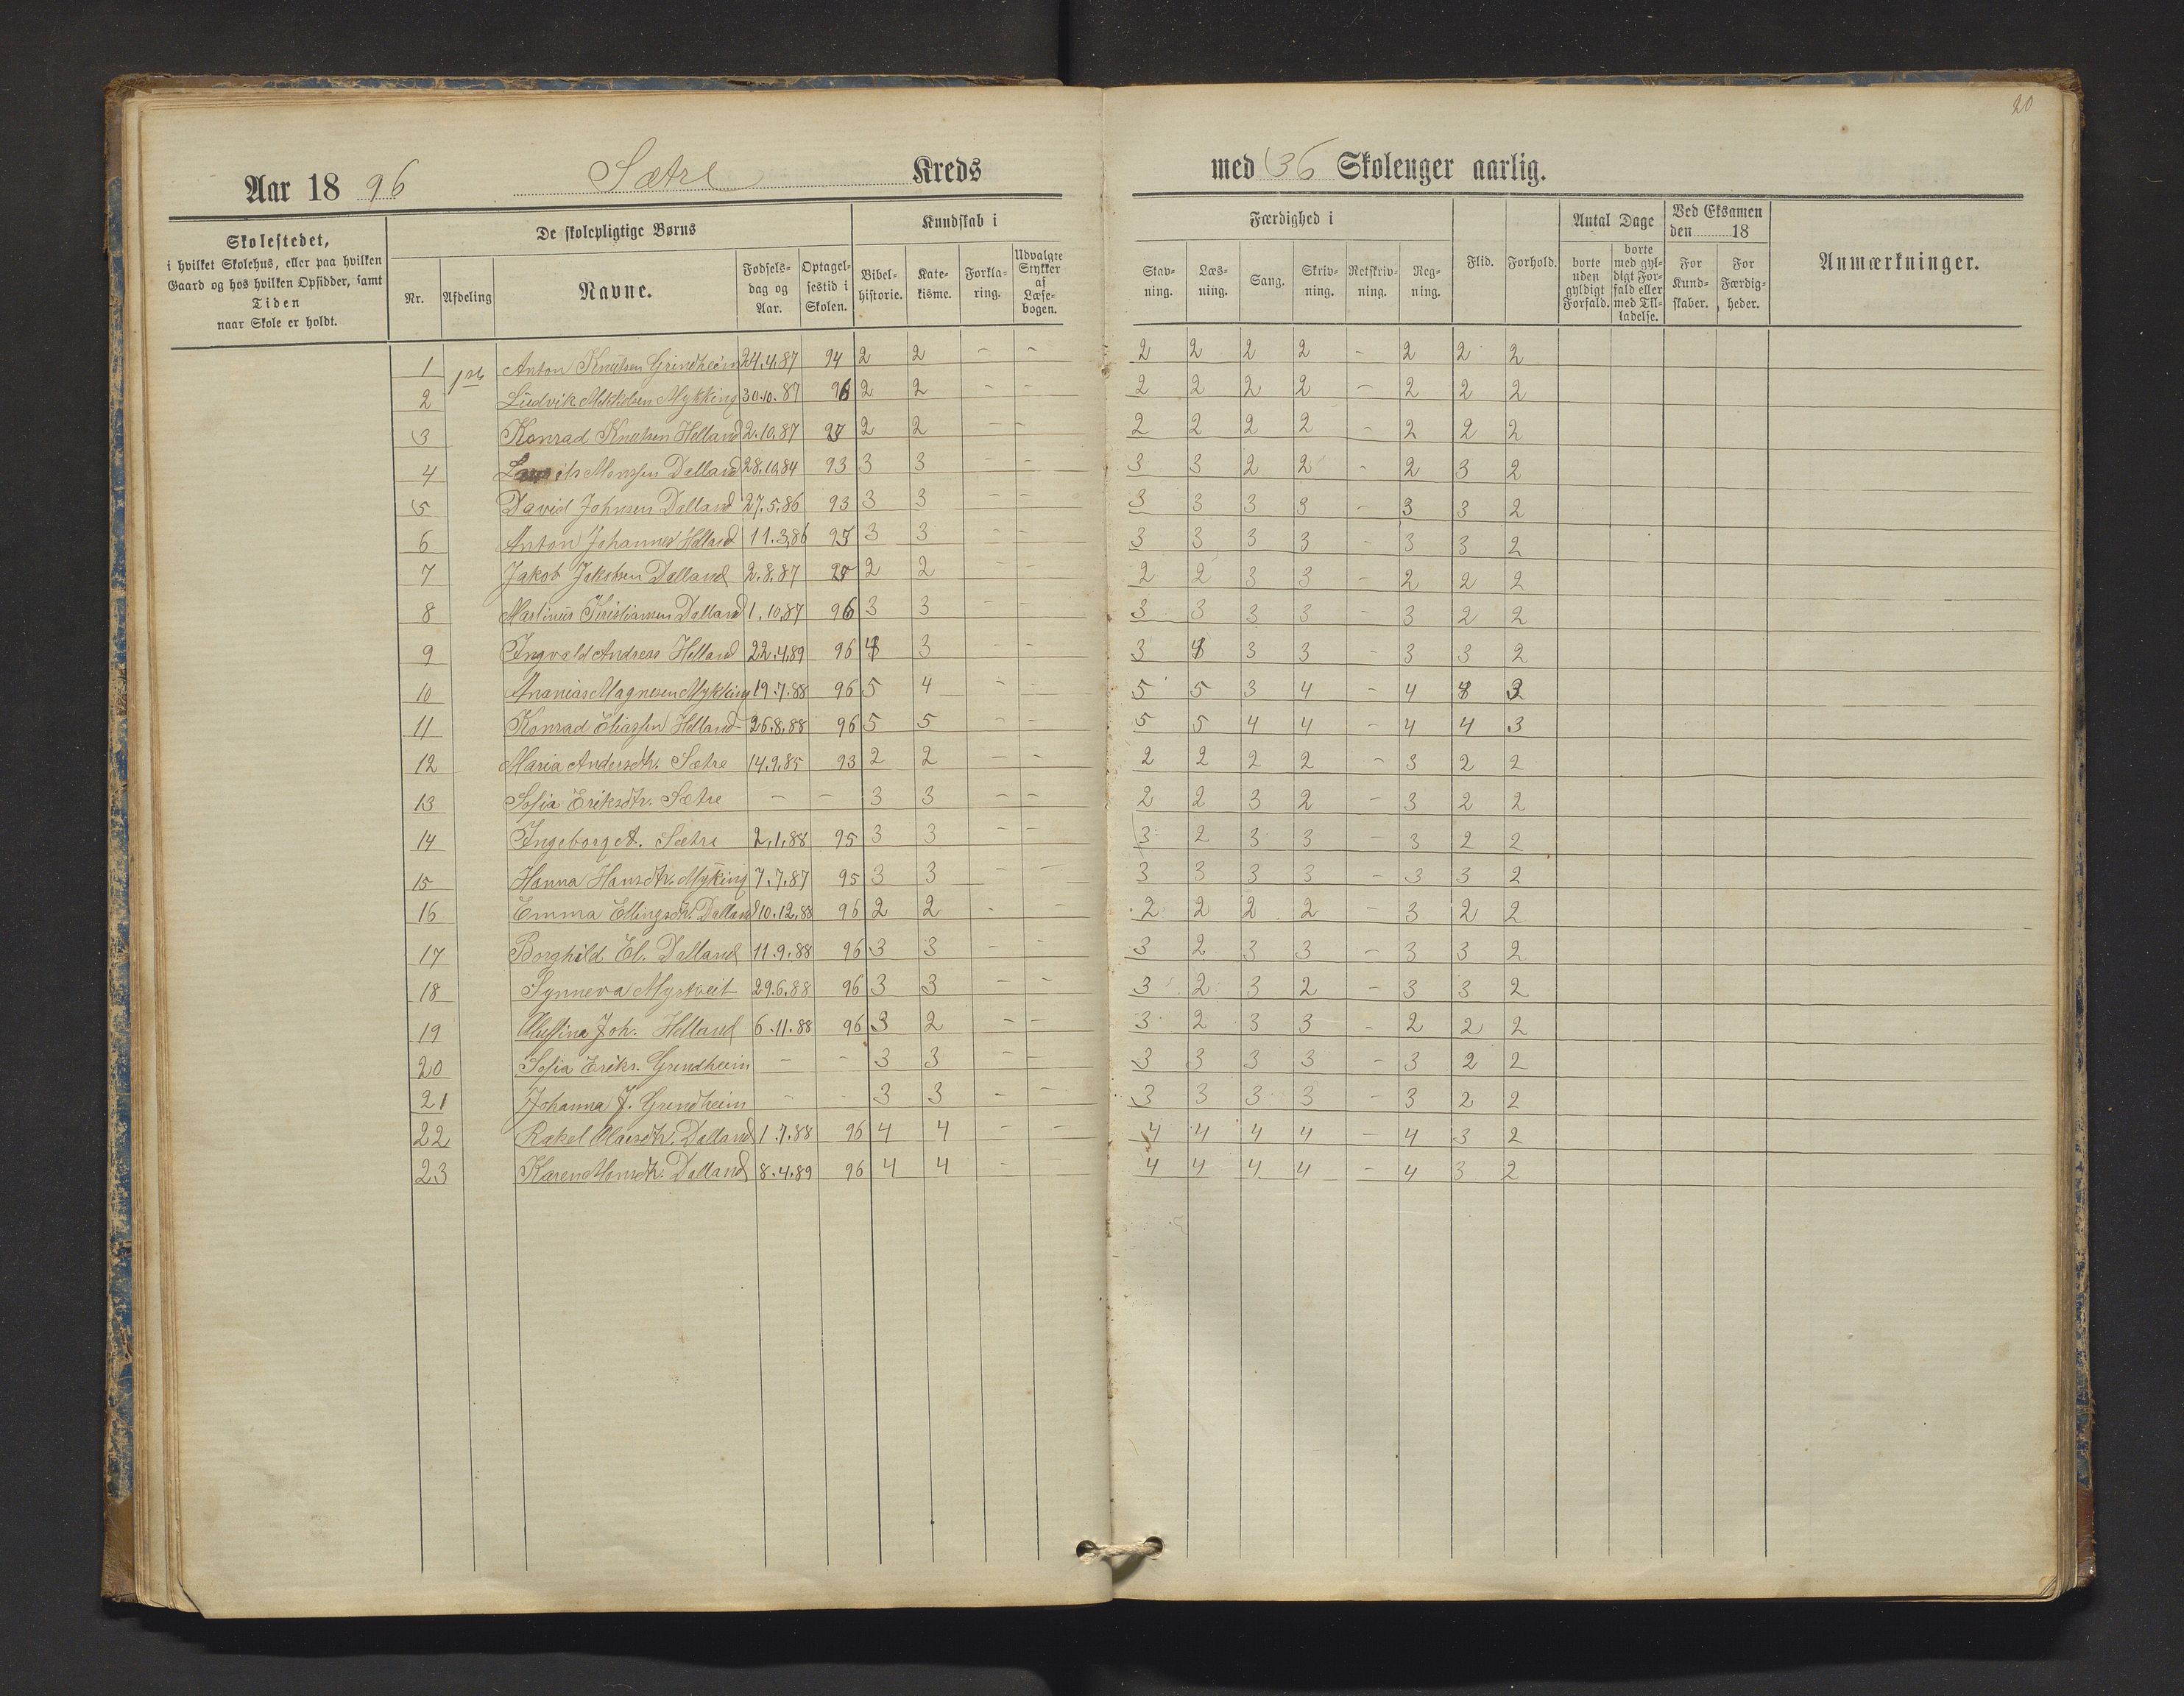 20
Aar 18 96 Sætre Kreds med 36 Skoleuger aarlig.
Skolestedet, i hvilket Skolehus, eller paa hvilken Gaard og hos hvilken Opsidder, samt Tiden naar Skole er holdt.
De skolepligtige Børns
Nr. Afdeling Navne. Fødselsdag og Aar. Optagelsestid i Skolen.
Kundskab i
Bibelhistorie. Katekisme. Forklaring. Udvalgte Stykker af Læsebogen.
Færdighed i
Stavning. Læsning. Sang. Skrivning. Retskrivning. Regning. Flid. Forhold.
Antal Dage
borte uden gyldigt Forfald. borte med gyldigt Forfald eller med Tilladelse.
Ved Eksamen den 18
For Kundskaber. For Færdigheder.
Anmærkninger.
1 1ste Anton Knutsen Grindheim 24.4.87 94 2 2 - - 2 2 2 2 - 2 2 2
2 Ludvik Mikkelsen Mykking 30.10.87 96 2 2 - - 2 2 2 2 - 2 2 2
3 Konrad Knutsen Helland 2.10.87 2 2 - - 2 2 2 2 - 2 2 2
4 Monssen Dalland 28.10.84 93 3 3 - - 3 3 2 2 - 2 3 2
5 David Johnsen Dalland 27.5.86 93 3 3 - - 3 3 3 3 - 3 3 2
6 Anton Johannes Helland 11.3.86 95 3 3 - - 3 3 3 3 - 3 3 2
7 Jakob Jakobsen Dalland 2.8.87 2 2 - - 2 2 3 3 - 2 2 2
8 Martinus Kristiansen Dalland 1.10.87 96 3 3 - - 3 3 3 3 - 3 2 2
9 Ingvald Andreas Helland 22.4.89 96 3 - - 3 3 3 - 3 3 2
10 Ananias Magnesen Mykking 19.7.88 96 5 4 - - 5 5 3 4 - 4 3
11 Konrad Eliassen Helland 26.8.88 96 5 5 - - 5 5 4 4 - 4 4 3
12 Maria Andersdtr. Sætre 14.9.85 93 2 2 - - 2 2 2 2 - 3 2 2
13 Sofia Eriksdtr. Sætre - - 3 3 - - 2 2 3 2 - 3 2 2
14 Ingeborg A. Sætre 2.1.88 95 3 3 - - 3 2 3 3 - 3 2 2
15 Hanna Hansdtr. Myking 7.7.87 95 3 3 - - 3 3 3 3 - 3 3 2
16 Emma Ellingsdtr. Dalland 10.12.88 96 2 2 - - 2 2 2 2 - 3 2 2
17 Borghild El. Dalland 11.9.88 96 3 3 - - 3 2 3 3 - 3 3 2
18 Synneva Myrtveit 29.6.88 96 3 3 - - 3 2 3 2 - 3 3 2
19 Joh. Helland 6.11.88 96 3 2 - - 3 2 3 3 - 2 2 2
20 Sofia Eriks. Grendheim - - 3 3 - - 3 3 3 3 - 3 2 2
21 Johanna J. Grendheim - - 3 3 - - 3 3 3 3 - 3 2 2
22 Rakel Olaisdtr. Dalland 1.7.88 96 4 4 - - 4 4 4 4 - 4 3 2
23 Karen Monsdtr. Dalland 8.4.89 96 4 4 - - 4 4 4 4 - 4 3 2